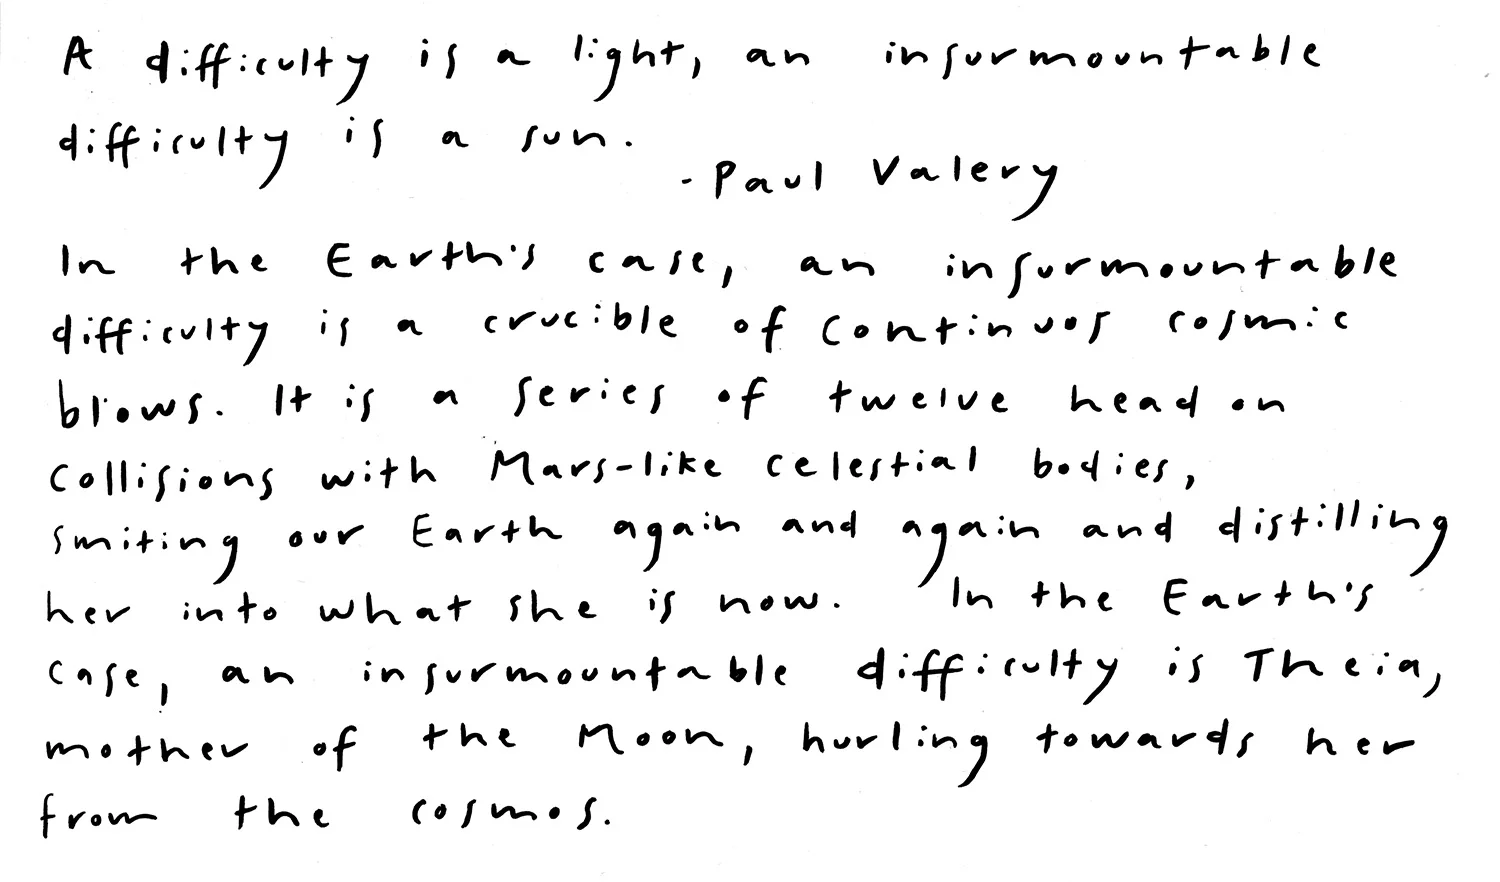 A difficulty is a light, an insurmountable
difficulty is a sun.
- Paul Valery
In the Earth's case, an insurmountable
difficulty is a crucible of continuos cosmic
blows. It is a series of twelve head on
collisions with Mars-like celestial bodies,
smiting our Earth again and again and distilling
her into what she is now. In the Earth's
case, an insurmountable difficulty is Theia,
mother of the Moon, hurling towards her
from the cosmos.